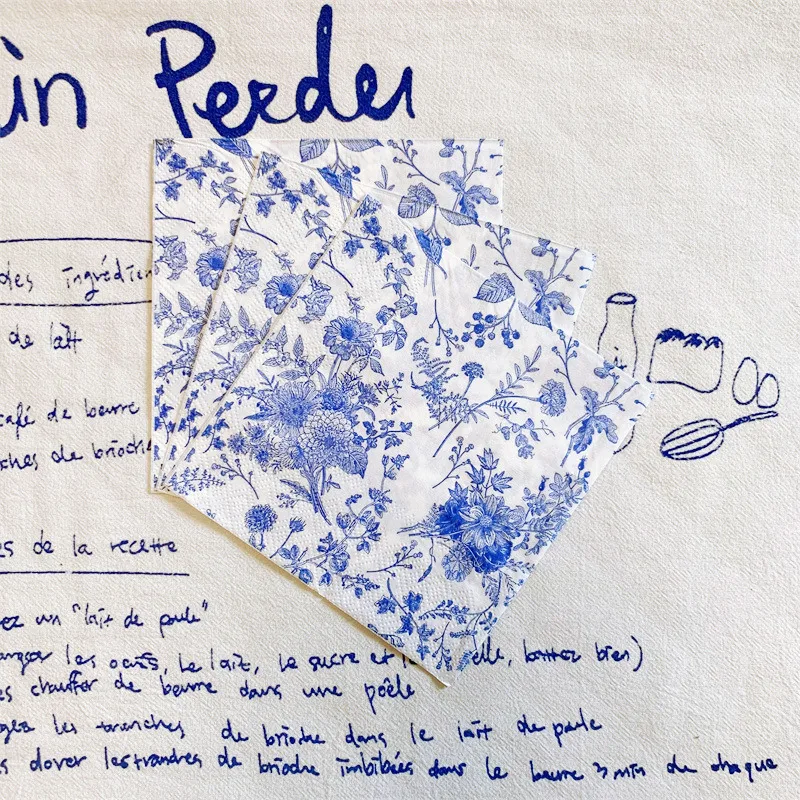 in Perdu
des ingrédien
de lait
café de beurre
ches de brioche
es de la recette
ez un "lait de poule"
anger les oeufs, le lait, le sucre et la elle, battez bien)
es chauffer de beurre dans une poêle
gez les tranches de brioche dans le lait de poule
s dorer les tranches de brioche imbibées dans le beurre 3 min de chaque